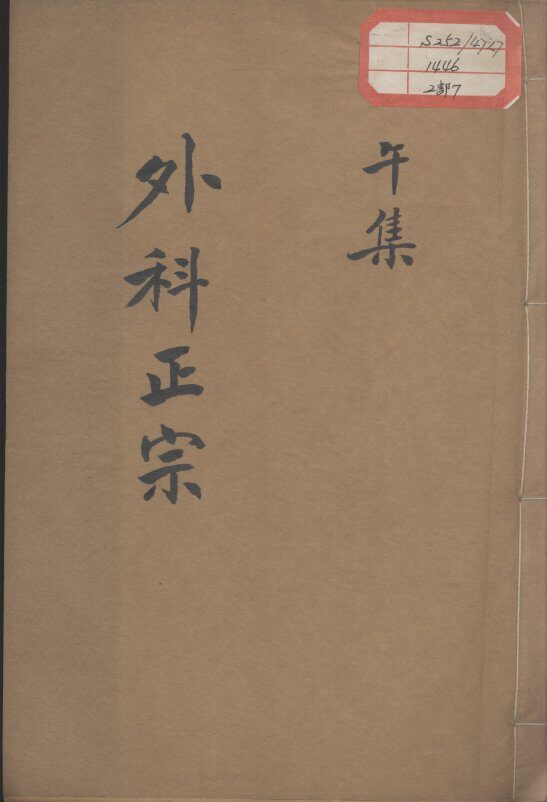 S252/4717
1446
2部7
午集
外科正宗